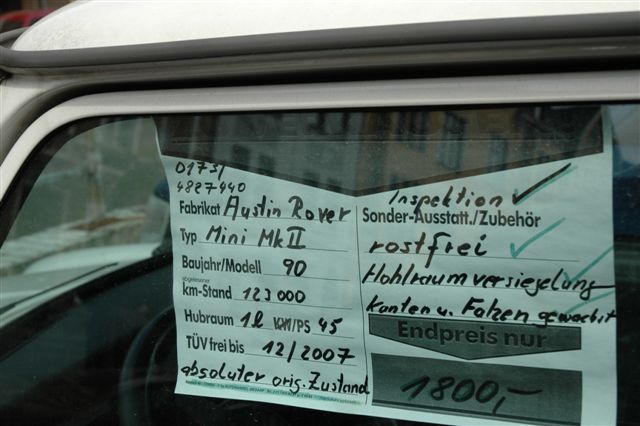 0173/
4827440
Fabrikat Austin Rover
Typ Mini Mk II
Baujahr/Modell 90
abgelesener
km-Stand 123 000
Hubraum 1l KW/PS 45
TÜV frei bis 12/2007
absoluter orig. Zustand
Inspektion ✓
Sonder-Ausstatt./Zubehör
rostfrei ✓
Hohlraumversiegelung
Kanten u. Falzen gewachst
Endpreis nur
1800,-